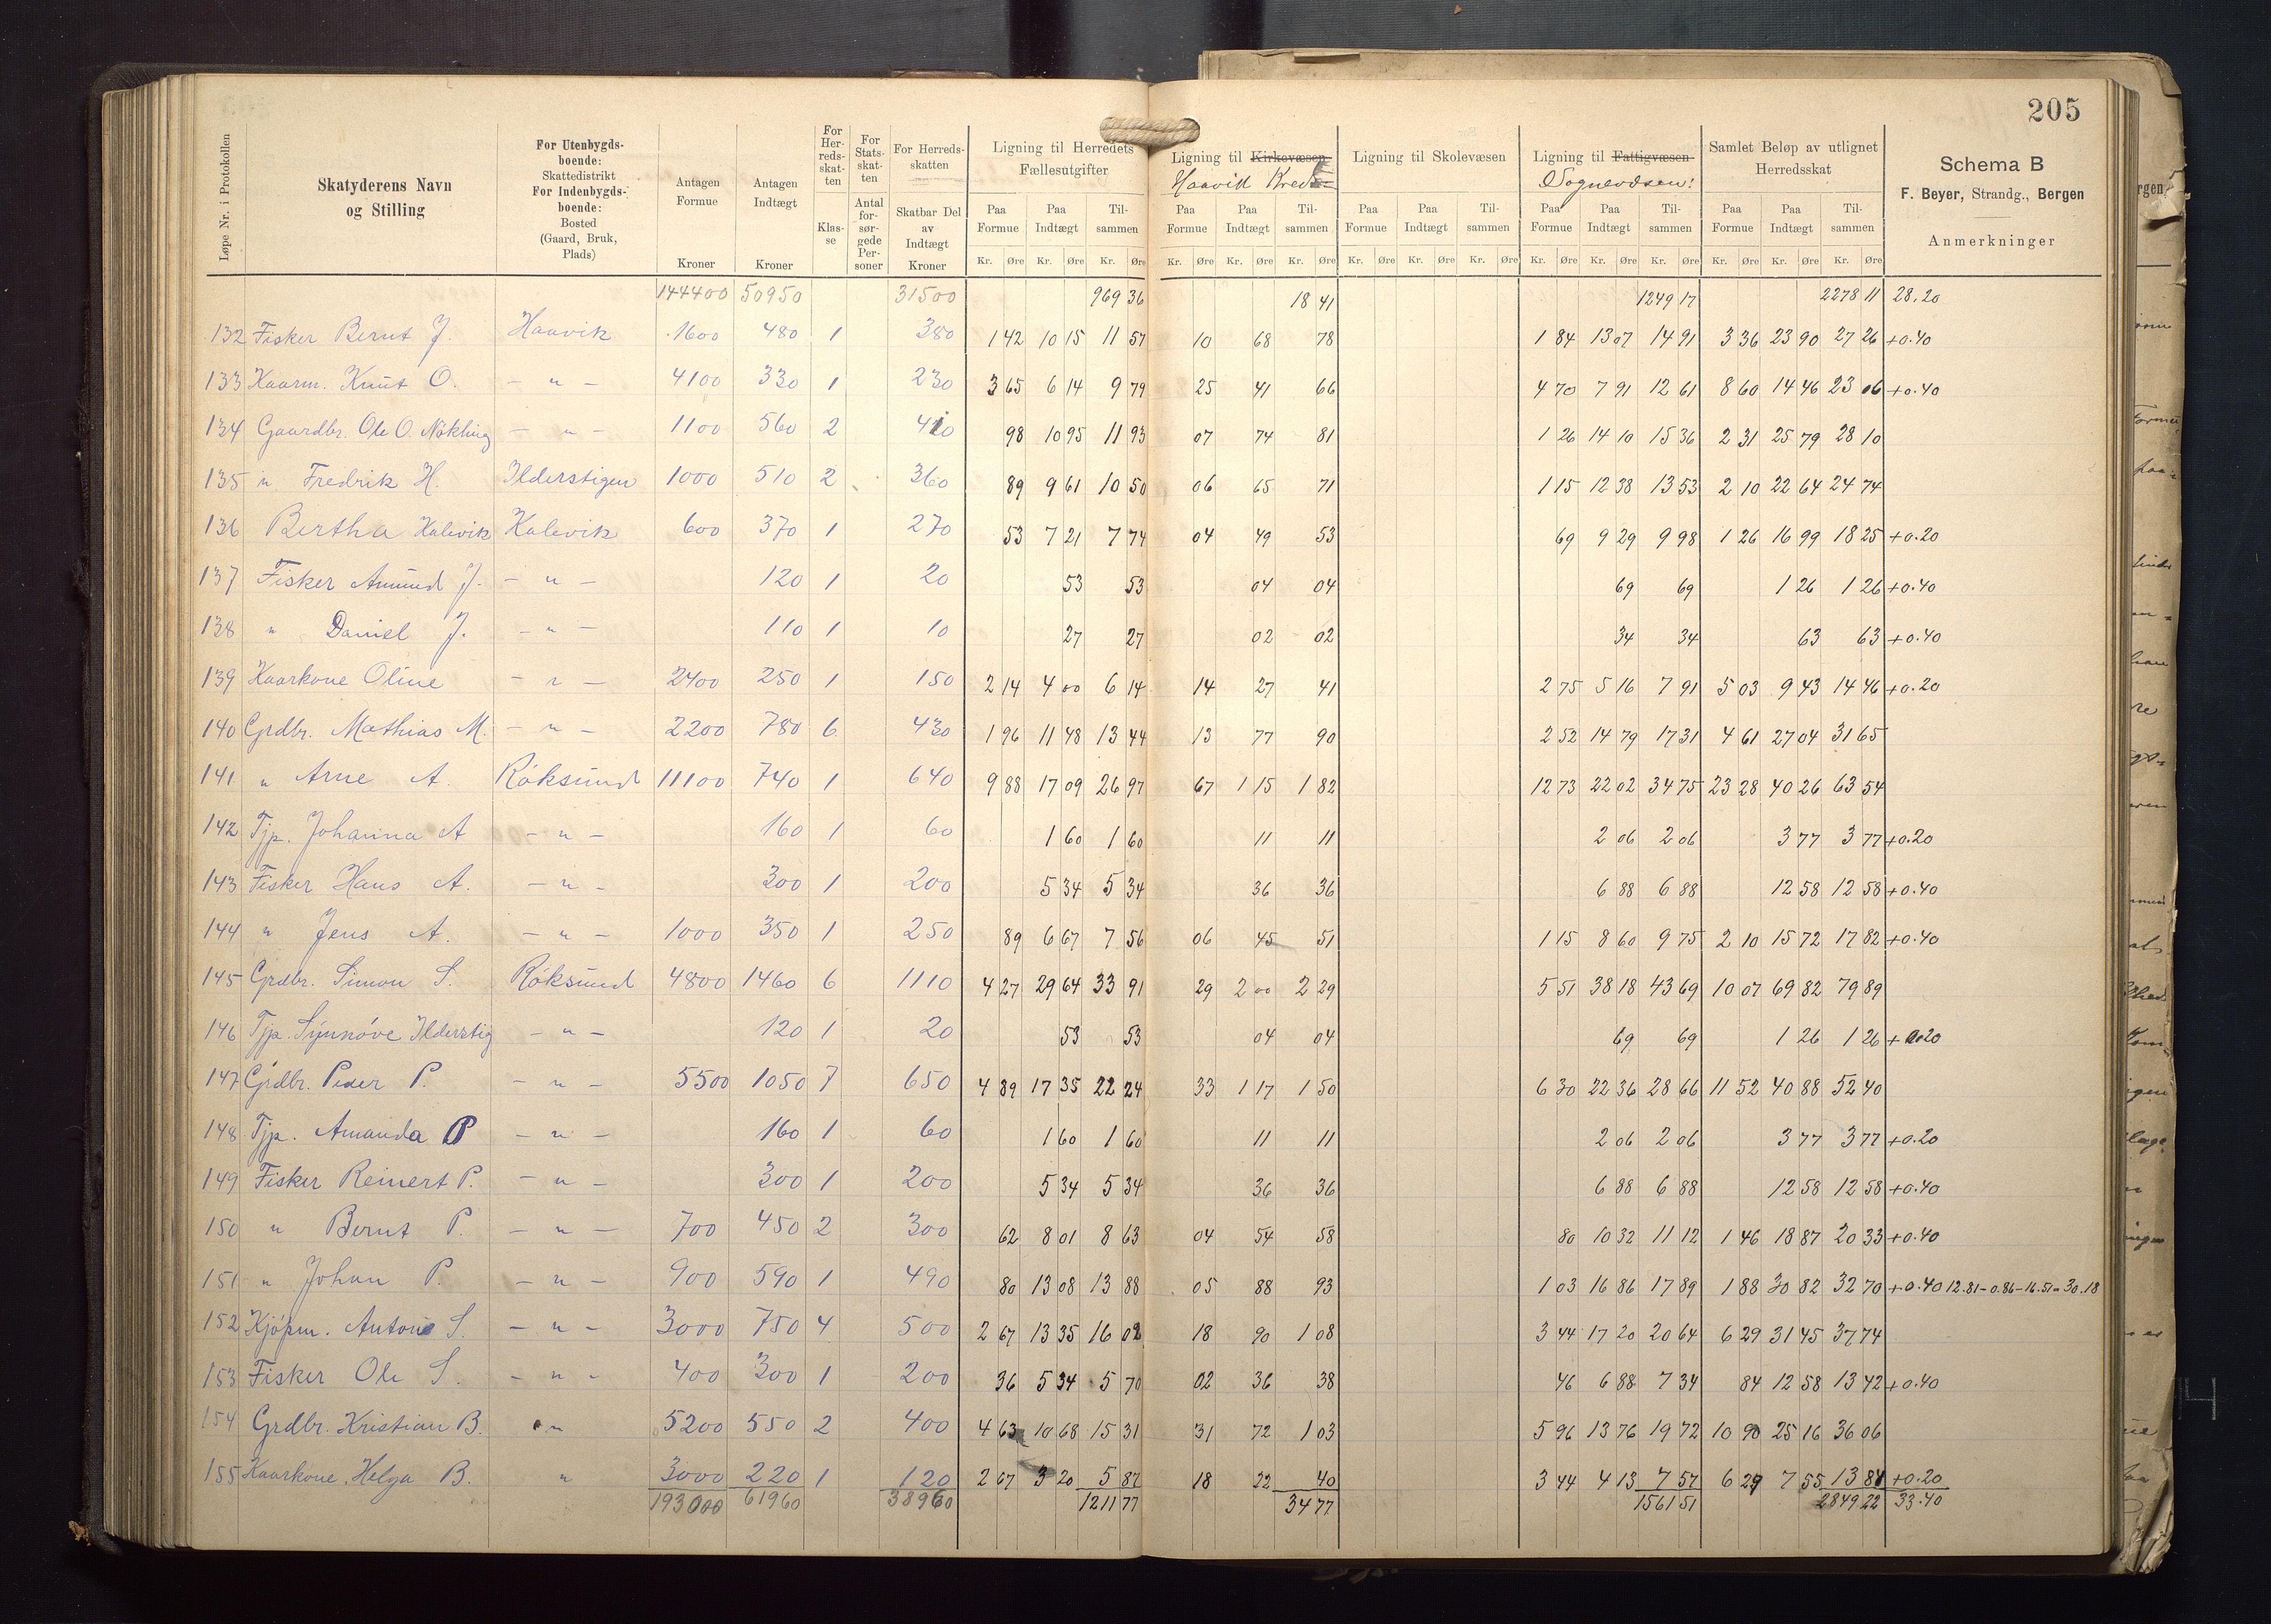 205
Løpe Nr. i Protokollen
Skatyderens Navn og Stilling
For Utenbygds-boende: Skattedistrikt For Indenbygds-boende: Bosted (Gaard, Bruk, Plads)
Antagen Formue Kroner
Antagen Indtægt Kroner
For Her-reds-skat-ten Klas-se
For Stats-skat-ten Antal for-sør-gede Per-soner
For Herreds-skatten Skatbar Del av Indtægt Kroner
Ligning til Herredets Fællesutgifter
Ligning til Kirkevæsen Haavik Kreds
Ligning til Skolevæsen
Ligning til Fattigvæsen Sognevæsen:
Samlet Beløp av utlignet Herredsskat
Paa Formue Paa Indtægt Til-sammen Paa Formue Paa Indtægt Til-sammen Paa Formue Paa Indtægt Til-sammen Paa Formue Paa Indtægt Til-sammen Paa Formue Paa Indtægt Til-sammen
Kr. Øre Kr. Øre Kr. Øre Kr. Øre Kr. Øre Kr. Øre Kr. Øre Kr. Øre Kr. Øre Kr. Øre Kr. Øre Kr. Øre Kr. Øre Kr. Øre Kr. Øre
Schema B
F. Beyer, Strandg., Bergen
Anmerkninger
144400 50950 31500 969 36 18 41 1249 17 2278 11 28,20
132 Fisker Bernt J. Haavik 1600 480 1 380 1 42 10 15 11 57 10 68 78 1 84 13 07 14 91 3 36 23 90 27 26 +0.40
133 Kaarm. Knut O. - " - 4100 330 1 230 3 65 6 14 9 79 25 41 66 4 70 7 91 12 61 8 60 14 46 23 06 +0.40
134 Gaardbr. Ole O. Nökling - " - 1100 560 2 410 98 10 95 11 93 07 74 81 1 26 14 10 15 36 2 31 25 79 28 10
135 " Fredrik H. Ilderstigen 1000 510 2 360 89 9 61 10 50 06 65 71 1 15 12 38 13 53 2 10 22 64 24 74
136 Bertha Kalevik Kalevik 600 370 1 270 53 7 21 7 74 04 49 53 69 9 29 9 98 1 26 16 99 18 25 +0.20
137 Fisker Amund J. - " - 120 1 20 53 53 04 04 69 69 1 26 1 26 +0.40
138 " Daniel J. - " - 110 1 10 27 27 02 02 34 34 63 63 +0.40
139 Kaarkone Oline - " - 2400 250 1 150 2 14 4 00 6 14 14 27 41 2 75 5 16 7 91 5 03 9 43 14 46 +0.20
140 Grdbr. Mathias M. - " - 2200 780 6 430 1 96 11 48 13 44 13 77 90 2 52 14 79 17 31 4 61 27 04 31 65
141 " Arne A. Röksund 11100 740 1 640 9 88 17 09 26 97 67 1 15 1 82 12 73 22 02 34 75 23 28 40 26 63 54
142 Tjp. Johanna A - " - 160 1 60 1 60 1 60 11 11 2 06 2 06 3 77 3 77 +0.20
143 Fisker Hans A. - " - 300 1 200 5 34 5 34 36 36 6 88 6 88 12 58 12 58 +0.40
144 " Jens A. - " - 1000 350 1 250 89 6 67 7 56 06 45 51 1 15 8 60 9 75 2 10 15 72 17 82 +0.40
145 Grdbr. Simon S. Röksund 4800 1460 6 1110 4 27 29 64 33 91 29 2 00 2 29 5 51 38 18 43 69 10 07 69 82 79 89
146 Tjp. Synnöve Ilderstig - " - 120 1 20 53 53 04 04 69 69 1 26 1 26 +0.20
147 Grdbr. Peder P. - " - 5500 1050 7 650 4 89 17 35 22 24 33 1 17 1 50 6 30 22 36 28 66 11 52 40 88 52 40
148 Tjp. Amanda P - " - 160 1 60 1 60 1 60 11 11 2 06 2 06 3 77 3 77 +0.20
149 Fisker Reinert P. - " - 300 1 200 5 34 5 34 36 36 6 88 6 88 12 58 12 58 +0.40
150 " Bernt P. - " - 700 450 2 300 62 8 01 8 63 04 54 58 80 10 32 11 12 1 46 18 87 20 33 +0.40
151 " Johan P. - " - 900 590 1 490 80 13 08 13 88 05 88 93 1 03 16 86 17 89 1 88 30 82 32 70 +0.40 12.81-0.86-16.51=30.18
152 Kjöpm. Anton S. - " - 3000 750 4 500 2 67 13 35 16 02 18 90 1 08 3 44 17 20 20 64 6 29 31 45 37 74
153 Fisker Ole S. - " - 400 300 1 200 36 5 34 5 70 02 36 38 46 6 88 7 34 84 12 58 13 42 +0.40
154 Grdbr. Kristian B. " 5200 550 2 400 4 63 10 68 15 31 31 72 1 03 5 96 13 76 19 72 10 90 25 16 36 06
155 Kaarkone Helga B. " 3000 220 1 120 2 67 3 20 5 87 18 22 40 3 44 4 13 7 57 6 29 7 55 13 84 +0.20
193000 61960 38960 1211 77 34 77 1561 51 2849 22 33.40